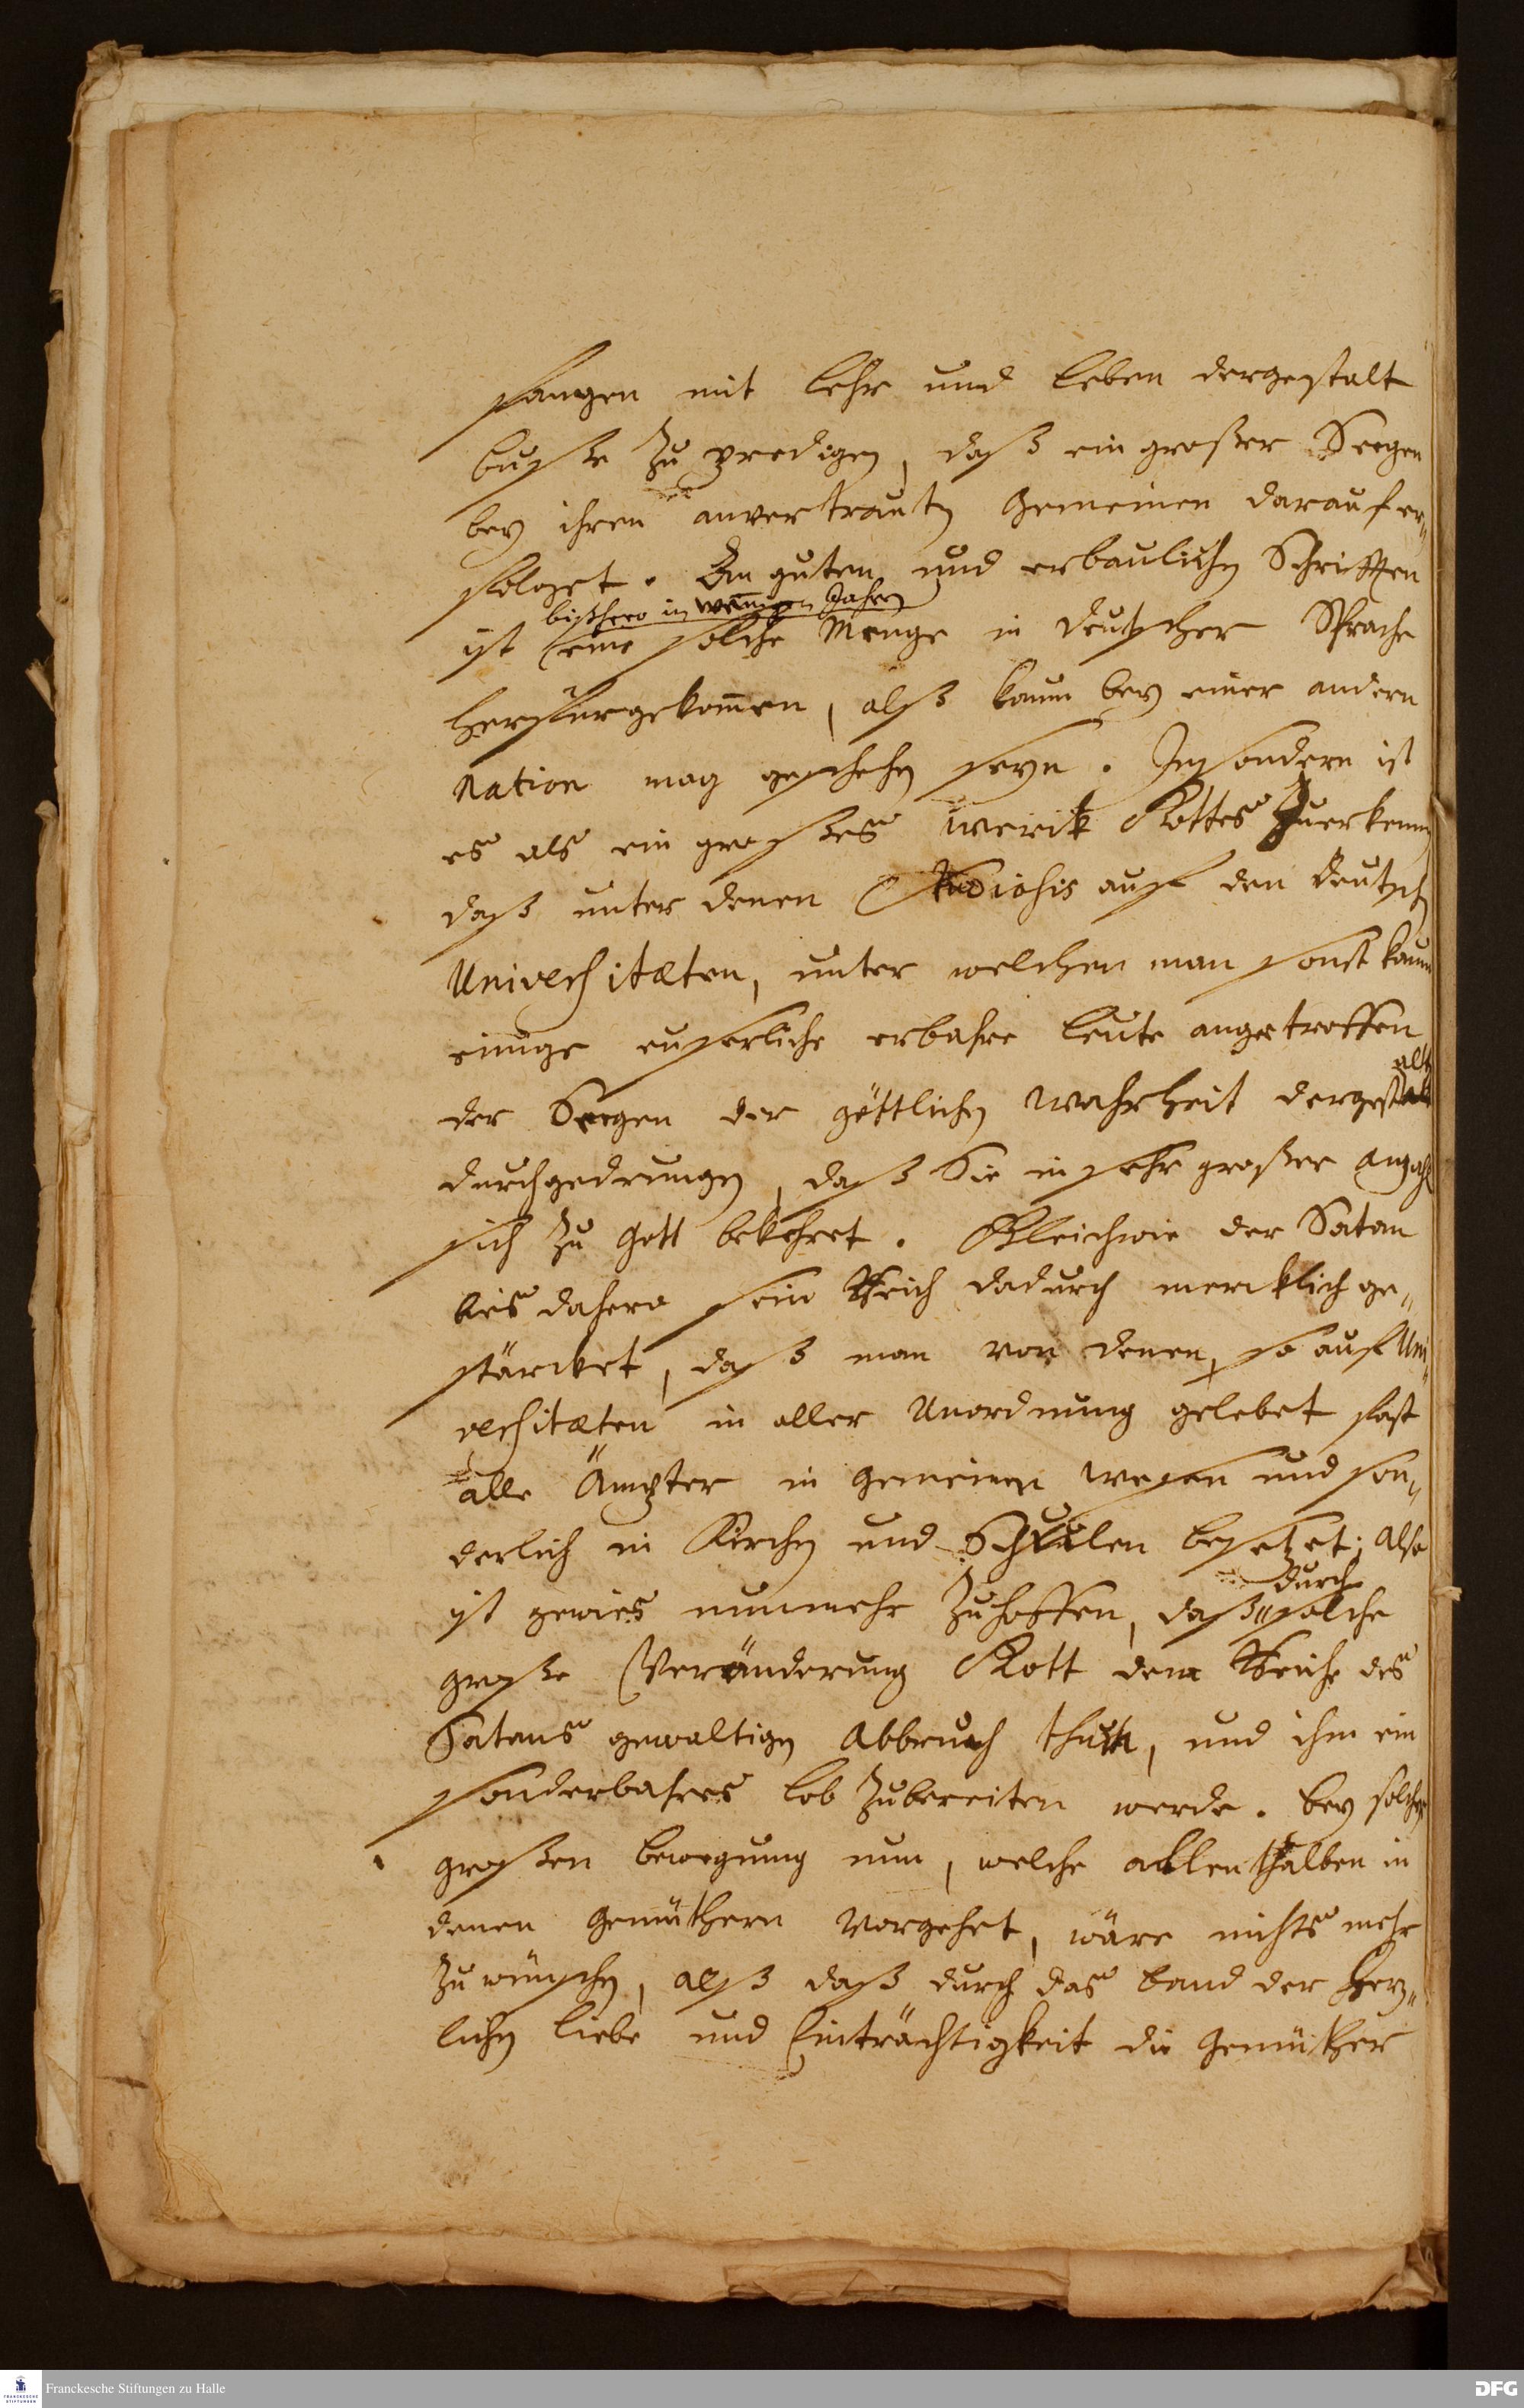 fangen mit Lehr und Leben dergestalt
buße zu predigen, daß ein großer Seegen
bey ihren anvertrauten Gemeinen darauf er„
folget. An guten und erbaulichen Schrifften
bißhero in wenigen Jahren
ist eine solche Menge in deutscher Sprache
herfürgekom̅en, alß kaum bey einer andern
Nation mag geschehen seyn. Insondern ist
es als ein großes werck Gottes zuerkennen
daß unter denen Studiosis auff den deutschen
Universitæten, unter welchen man sonst kaum
einige euserliche erbahre leute angetroffen
der Seegen der göttlichen Wahrheit dergestalt
durchgedrungen, daß Sie in sehr großer anzahl
sich zu Gott bekehret. Gleichwie der Satan
bis dahero sein Reich dadurch mercklich ge„
stärcket, daß man von denen, so auf Uni„
versitæten in aller Unordnung gelebet fast
alle Ämpter in gemeinen wesen und son„
derlich in Kirchen und Schulen besetzet; Also
ist gewis nunmehr zuhoffen, daß durch solche
große Veränderung Gott dem Reiche des
Satans gewaltigen Abbruch thun, und ihm ein
sonderbahres lob zubereiten werde. bey solcher
großen bewegung nun, welche allenthalben in
denen Gemüthern vorgehet, wäre nichts mehr
zu wünschen, alß daß durch das band der Hertz„
lichen liebe und Einträchtigkeit die Gemüther
Franckesche Stiftungen zu Halle
DFG